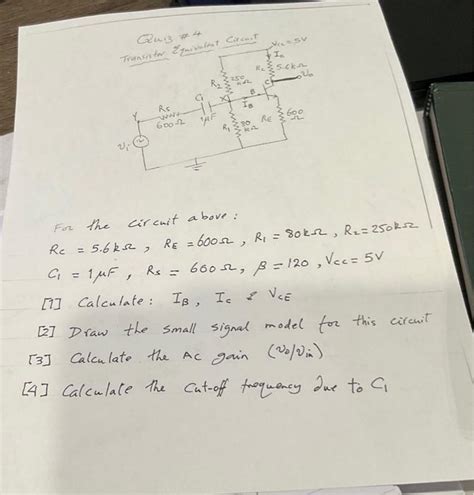 Quiz #4
Transistor Equivalent Circuit
Vcc = 5V
Ic
R2 250 kΩ
Rc 5.6kΩ
C
Vo
Rs
600Ω
C1
1μF
X
B
IB
R1 80 kΩ
RE
600 Ω
Y
Vi
For the circuit above:
Rc = 5.6kΩ, RE = 600Ω, R1 = 80kΩ, R2 = 250kΩ
C1 = 1μF, Rs = 600Ω, β = 120, Vcc = 5V
[1] Calculate: IB, Ic & VCE
[2] Draw the small signal model for this circuit
[3] Calculate the AC gain (vo/vin)
[4] Calculate the cut-off frequency due to C1